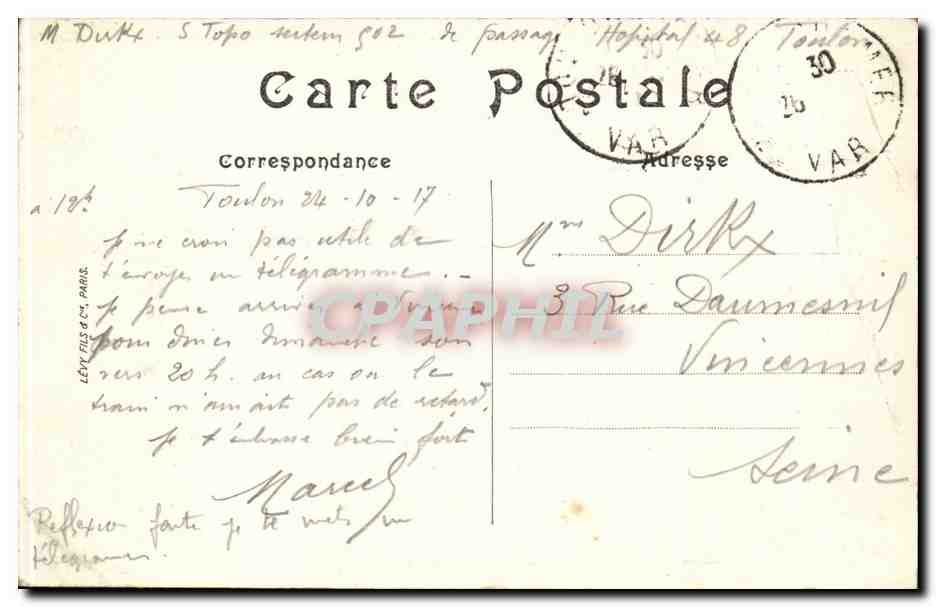 M Dirkx. S Topo secteur 502 de passage Hopital 48 Toulon
Carte Postale
30
26
VAR
30
26
VAR
Correspondance
Adresse
a 12h
Toulon 24-10-17
je ne crois pas utile de
t'envoyer un télégramme. -
je pense arriver a
pour diner dimanche soir
vers 20 h. au cas ou le
train n'aurait pas de retard.
je t'embrasse bien fort
Marcel
Reflexion faite je te mets un
télégramme.
Mme Dirkx
3 Rue Daumesnil
Vincennes
Seine
LÉVY FILS & Cie, PARIS.
CPAPHIL